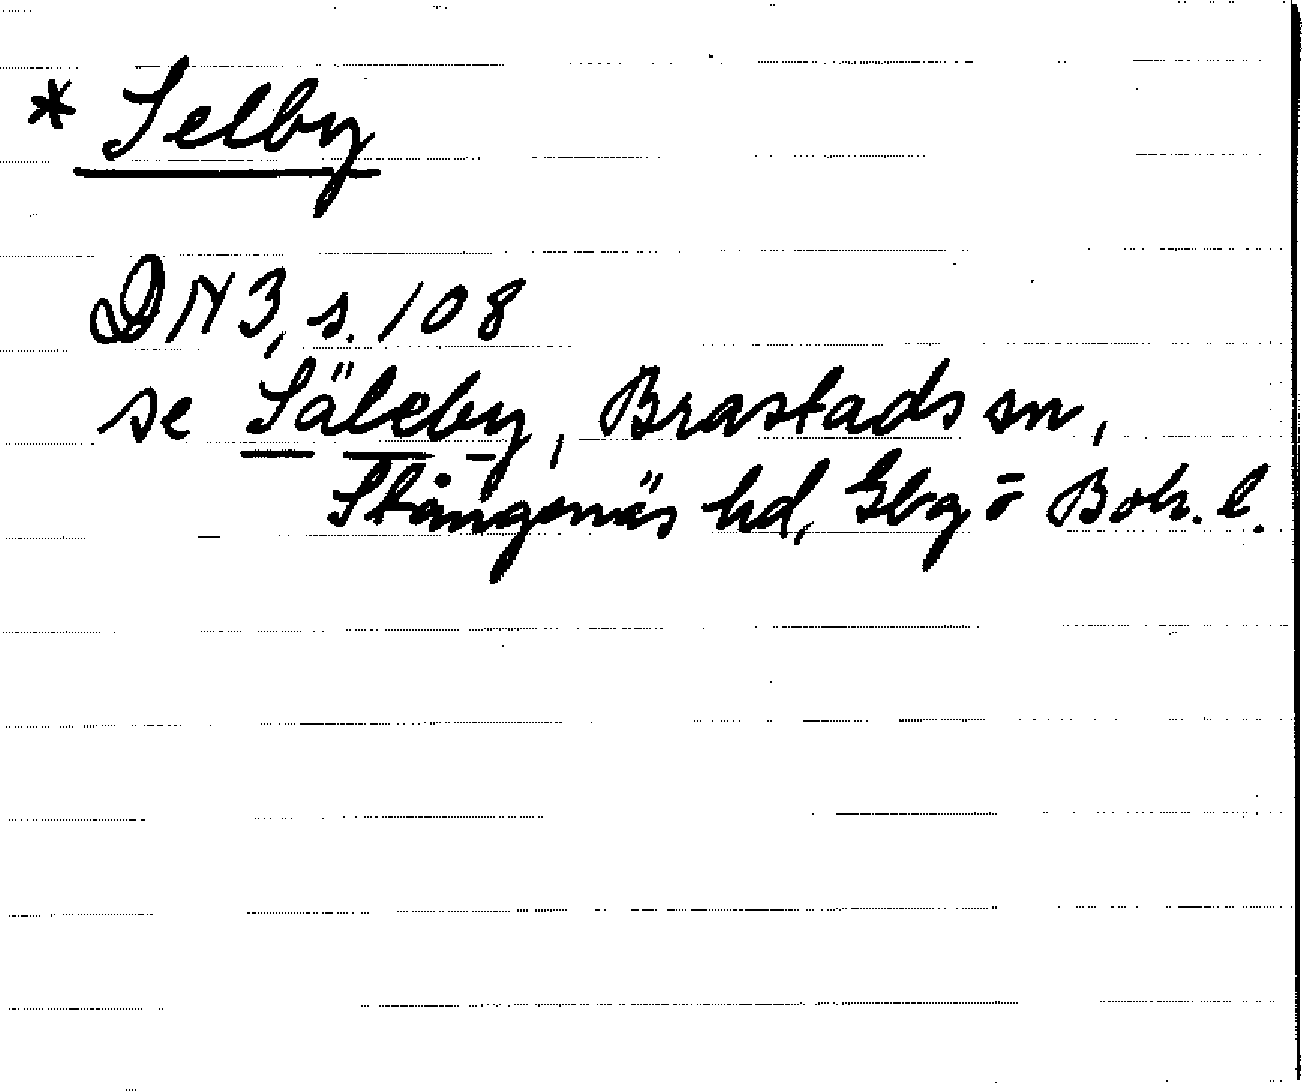 * Selby
DN 3, s. 108
se Säleby, Brastads sn,
Stångenäs hd, Gbg o Boh. l.